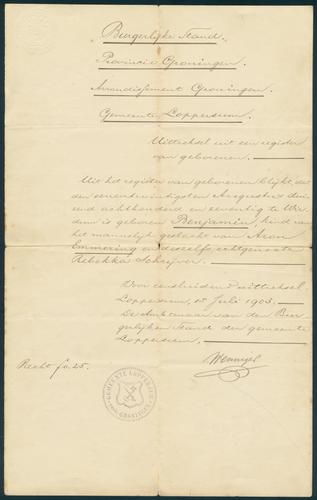 Burgerlijke Stand.
Provincie Groningen.
Arrondissement Groningen.
Gemeente Loppersum.
Uittreksel uit een register
van geborenen.
Uit het register van geborenen blijkt, dat
den Augustus
achthonderd en zeventig te
is geboren Benjamin kind van
het mannelijk geslacht van Aron
Emmering en deszelfs echtgenoote
Rebekka Schrijver.
Voor eensluidend uittreksel,
Loppersum, Juli 1903.
De Ambtenaar van den Bur
gelijken Stand der gemeente
Loppersum,
Recht f 0.25.
GEMEENTE LOPPERSUM
GRONINGEN